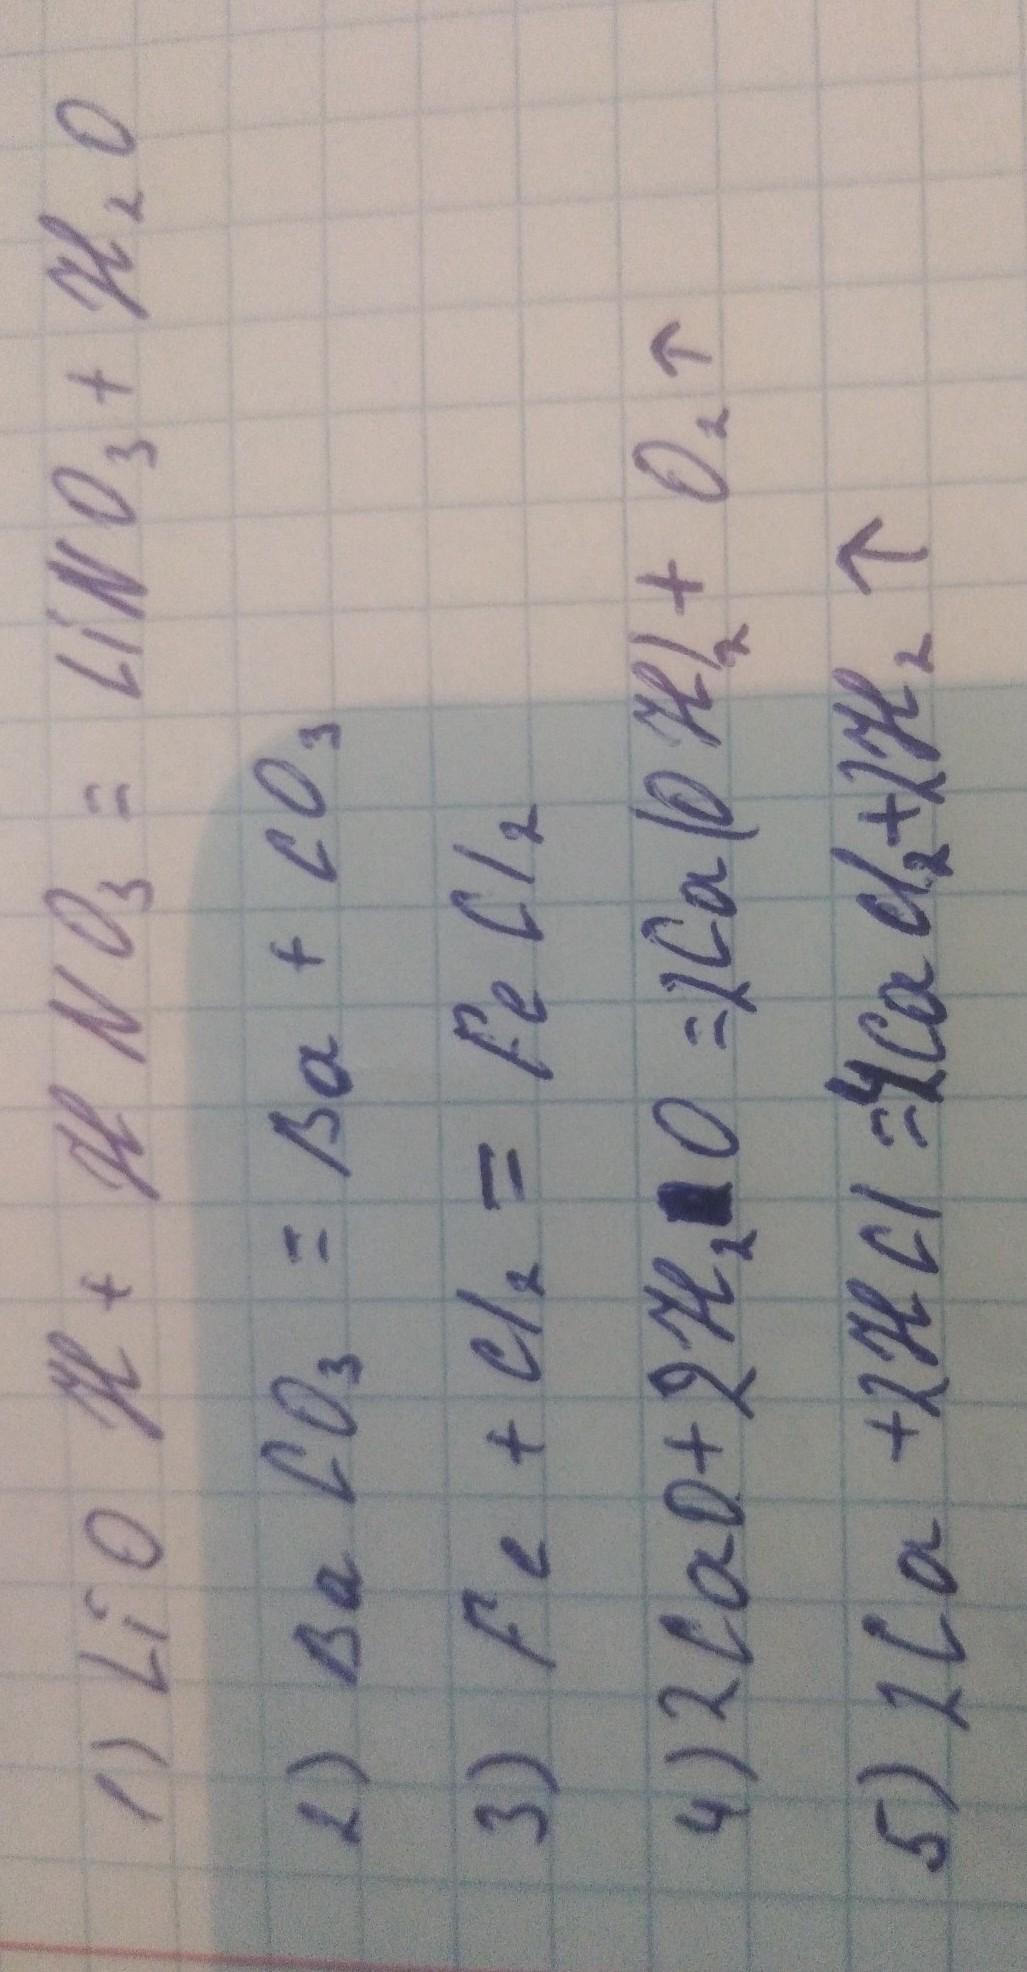 1) LiOH + HNO₃ = LiNO₃ + H₂O
2) BaCO₃ = Ba + CO₃
3) Fe + Cl₂ = FeCl₂
4) 2CaO + 2H₂O = 2Ca(OH)₂ + O₂↑
5) 2Ca + 2HCl = 4CaCl₂ + 2H₂↑